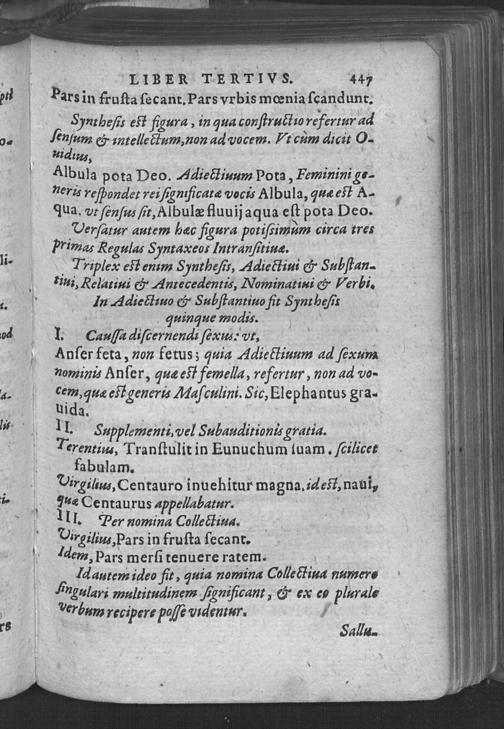 LIBER TERTIVS. 447
Pars in frusta secant. Pars vrbis mœnia scandunt.
Synthesis est figura, in qua constructio refertur ad
sensum & intellectum, non ad vocem. Vt cùm dicit O-
uidius,
Albula pota Deo. Adiectiuum Pota, Feminini ge-
neris respondet rei significatæ vocis Albula, quæ est A-
qua. vt sensus sit, Albulæ fluuij aqua est pota Deo.
Versatur autem hæc figura potissimùm circa tres
primas Regulas Syntaxeos Intransitiuæ.
Triplex est enim Synthesis, Adiectiui & Substan-
tiui, Relatiui & Antecedentis, Nominatiui & Verbi.
In Adiectiuo & Substantiuo fit Synthesis
quinque modis.
I. Caussa discernendi sexus: vt,
Anser feta, non fetus; quia Adiectiuum ad sexum
nominis Anser, quæ est femella, refertur, non ad vo-
cem, quæ est generis Masculini. Sic, Elephantus gra-
uida.
II. Supplementi, vel Subauditionis gratia.
Terentius, Transtulit in Eunuchum suam. scilicet
fabulam.
Virgilius, Centauro inuehitur magna. id est, naui,
quæ Centaurus appellabatur.
III. Per nomina Collectiua.
Virgilius, Pars in frusta secant.
Idem, Pars mersi tenuere ratem.
Id autem ideo fit, quia nomina Collectiua numero
singulari multitudinem significant, & ex eo plurale
verbum recipere posse videntur.
Sallu-